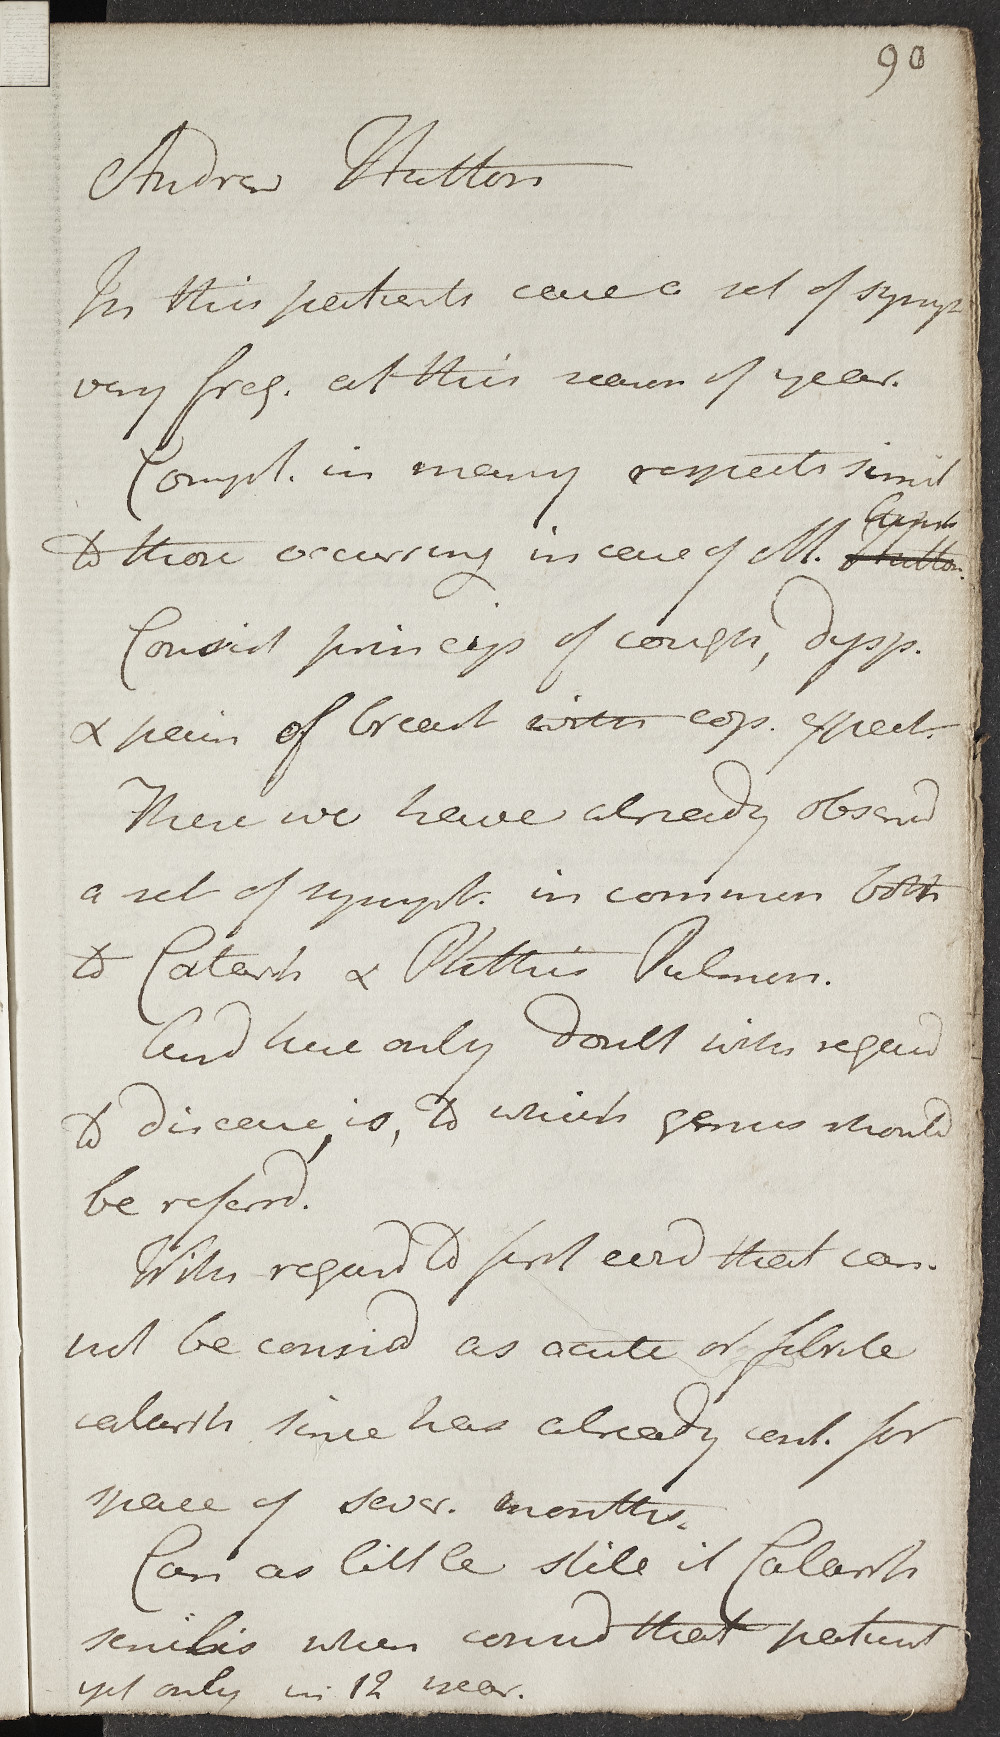 90
Andrew Hutton
In this patients case a set of sympt
very freq. at this season of year.
Compl. in many respects simil
to those occurring in case of M. Hutton.
Consist princip of cough, dysp.
& pain of breast with cop. expect.
These we have already observd
a set of sympt. in common both
to Catarrh & Phthisis Pulmon.
And here only doubt with regard
to disease, is, to which genus should
be referrd.
With regard to first coud that can.
not be considd as acute or febrile
catarrh since has already cont. for
space of sever. months.
Can as little stile it Catarrh
senilis when considd that patient
yet only in 12 year.